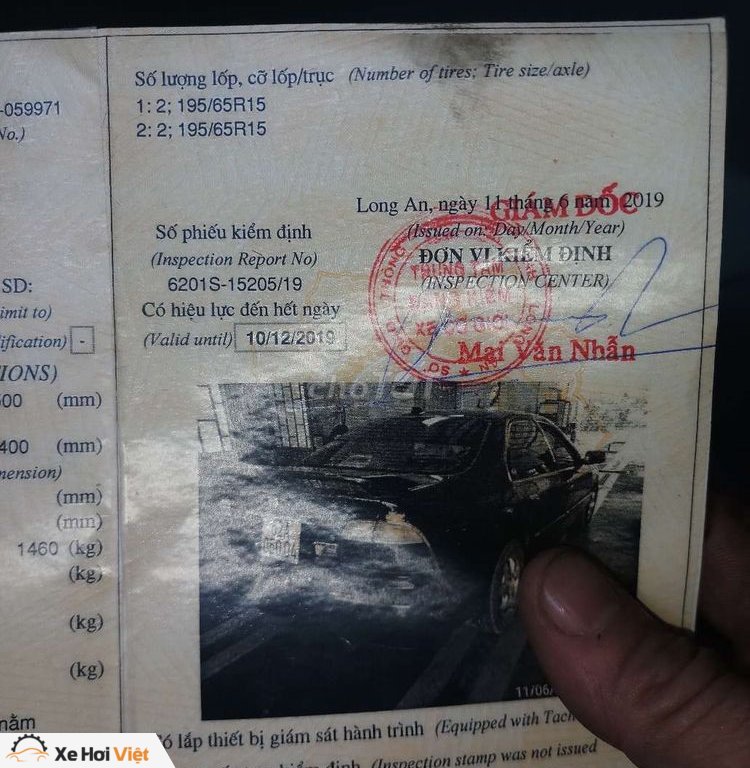 -059971
No.)
SD:
imit to)
ification) -
IONS)
500 (mm)
400 (mm)
mension)
(mm)
(mm)
1460 (kg)
(kg)
(kg)
(kg)
nằm
Số lượng lốp, cỡ lốp/trục (Number of tires; Tire size/axle)
1: 2; 195/65R15
2: 2; 195/65R15
Long An, ngày 11 tháng 6 năm 2019
(Issued on: Day/Month/Year)
GIÁM ĐỐC
Số phiếu kiểm định
(Inspection Report No)
6201S-15205/19
Có hiệu lực đến hết ngày
(Valid until) 10/12/2019
ĐƠN VỊ KIỂM ĐỊNH
(INSPECTION CENTER)
TRUNG TÂM
Mai Văn Nhẫn
11/06/
ó lắp thiết bị giám sát hành trình (Equipped with Tach
định (Inspection stamp was not issued
Xe Hơi Việt